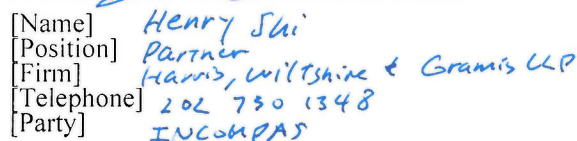 [Name] Henry Shi
[Position] Partner
[Firm] Harris, Wiltshire & Gramis LLP
[Telephone] 202 730 1348
[Party] INCOMPAS